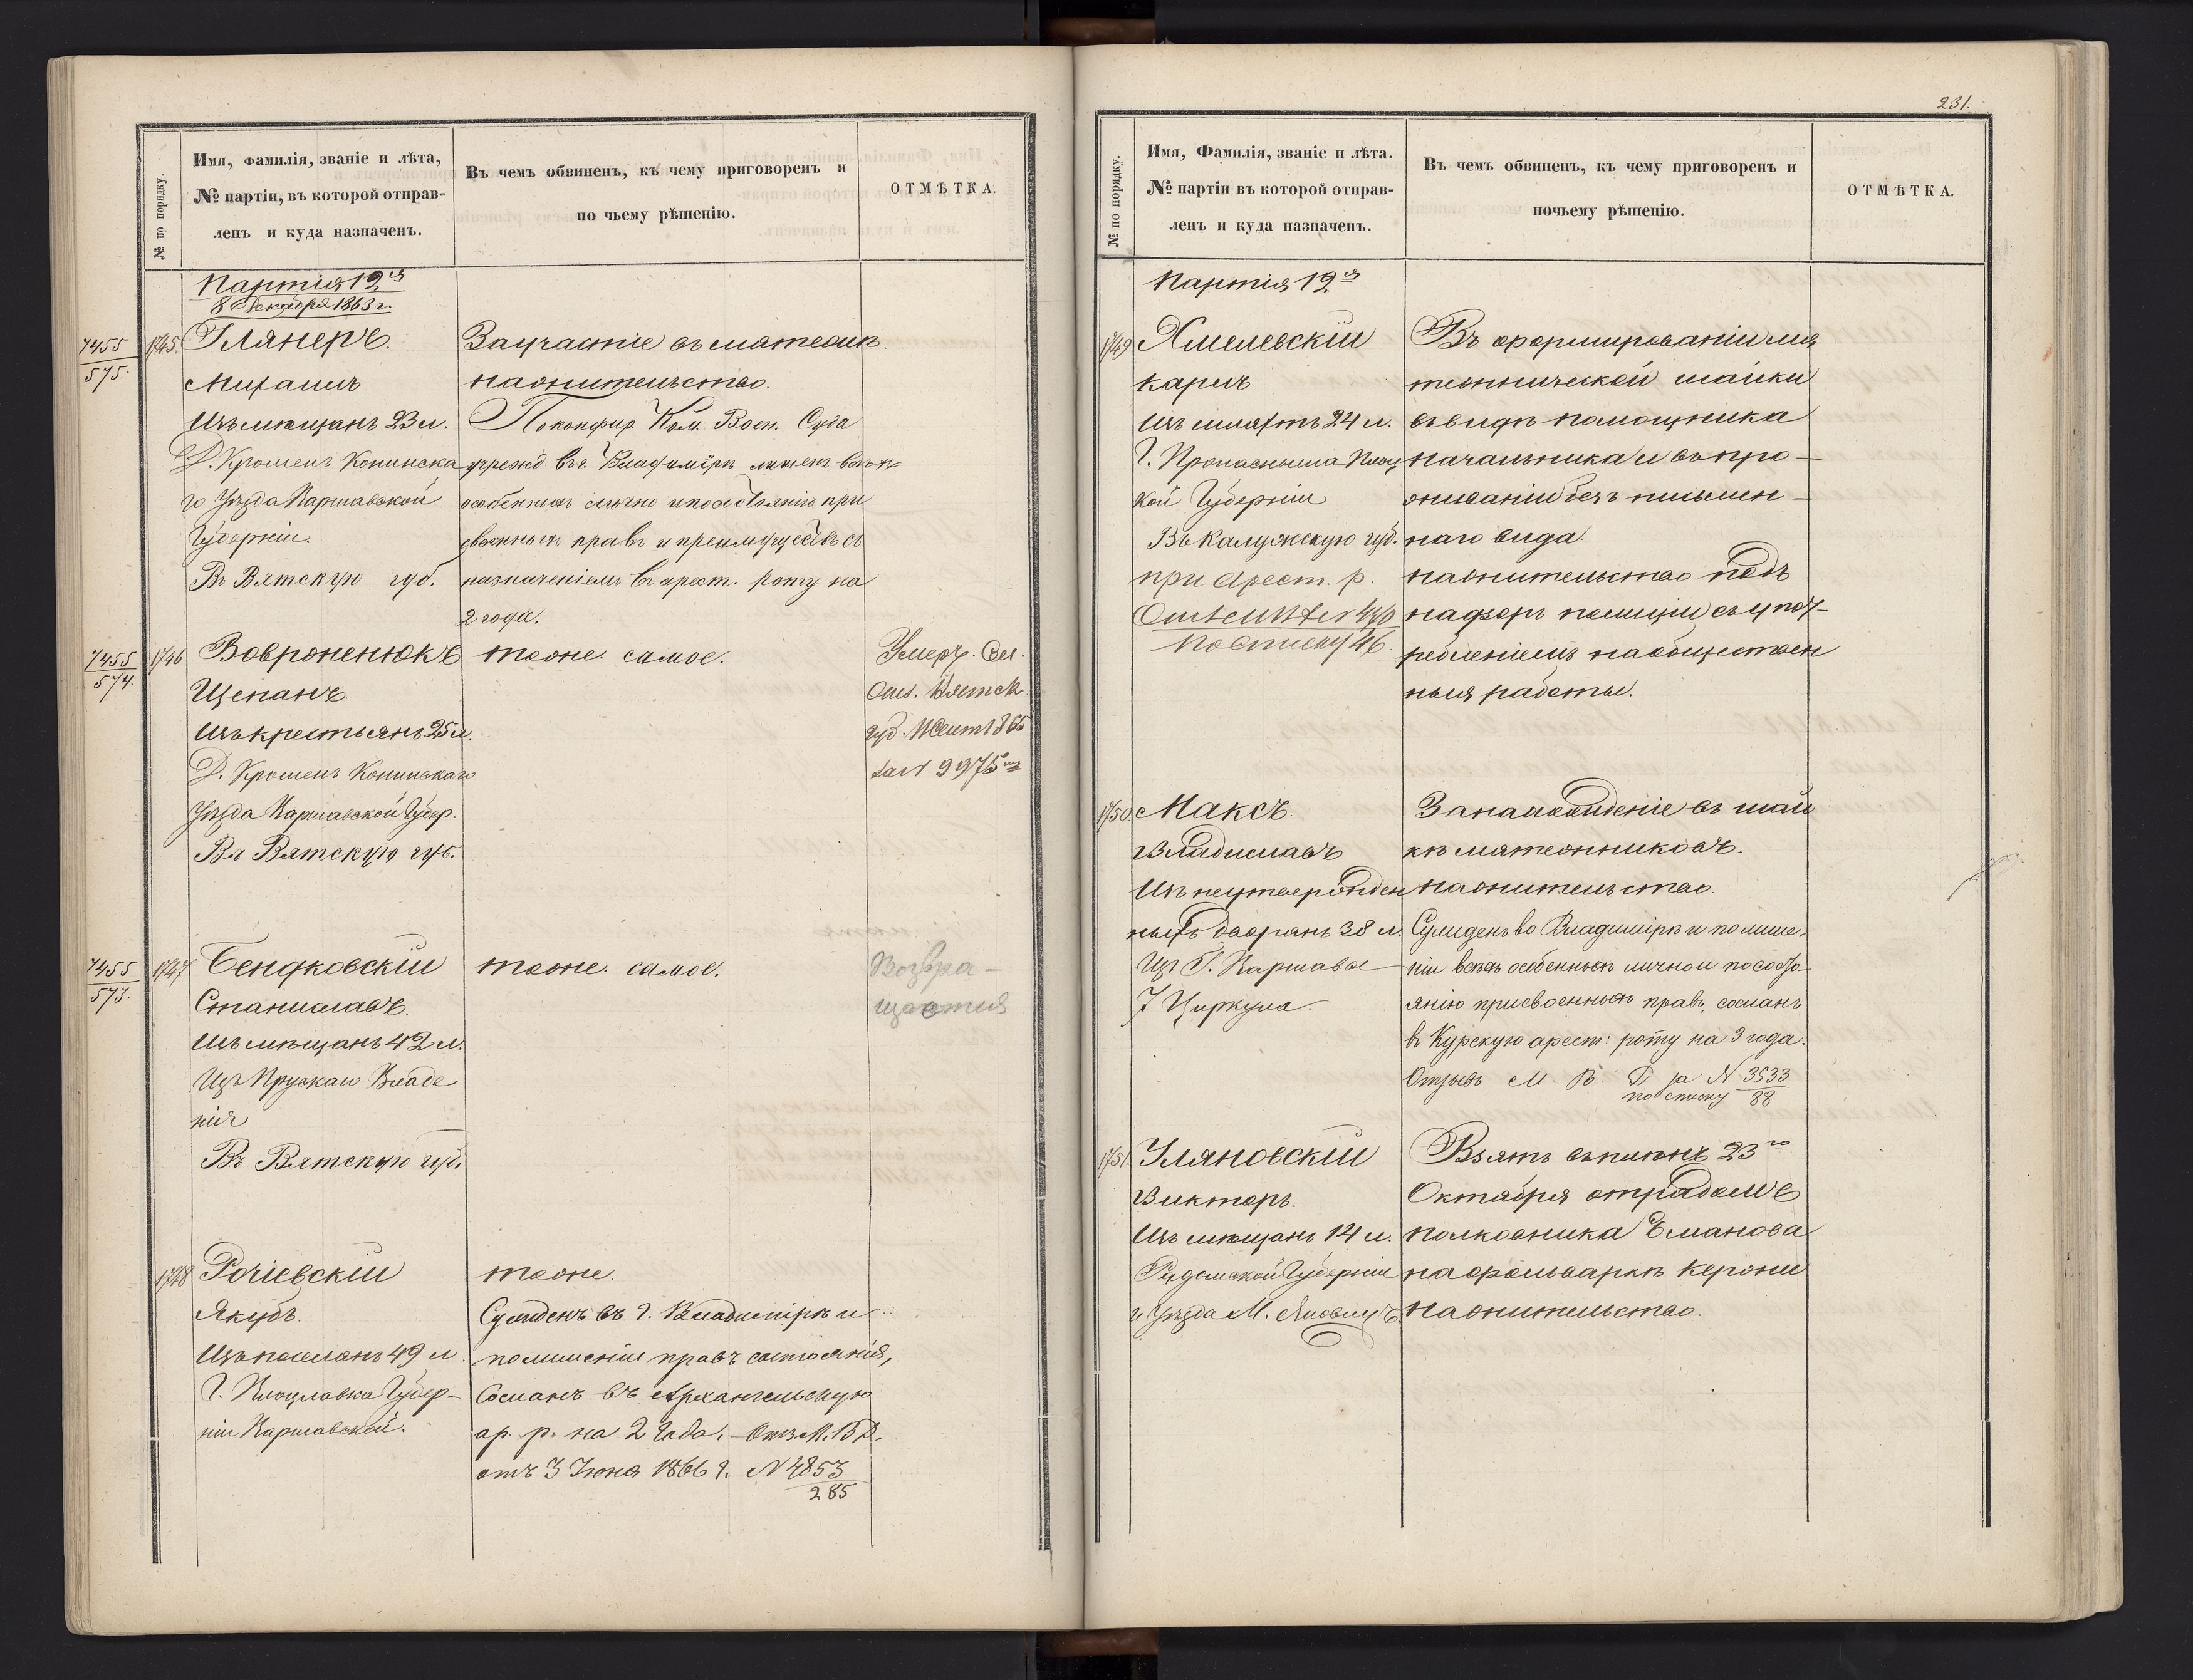 № по порядку.
Имя, Фамилія, званіе и лѣта,
№ партіи, въ которой отправ-
ленъ и куда назначенъ.
Въ чемъ обвиненъ, къ чему приговоренъ и
по чьему рѣшенію.
ОТМѢТКА.
Партія 12я
8 Декабря 1863 г.
7455
575.
1745.
Глянеръ.
Михаилъ
Изъ мѣщанъ 23 л.
Д. Кромень Конинска
го Уѣзда Варшавской
Губерніи.
Въ Вятскую губ.
За участіе въ мятежѣ.
На жительство.
По конфир. Ком. Воен. Суда
учрежд. въ г. Владимірѣ лишенъ всѣхъ
особенныхъ лично и по состоянію при
своенныхъ правъ и преимуществъ съ
назначеніемъ въ арест. роту на
2 года.
7455
574.
1746
Вовроненюкъ
Щепанъ
Изъ крестьянъ 25 л.
Д. Кромень Конинскаго
Уѣзда Варшавской Губер.
Въ Вятскую губ.
тоже самое.
Умеръ.
Вятск
губ.
за № 9975
7455
573.
1747
Бендковскій
Станиславъ.
Изъ мѣщанъ 42 л.
Изъ Прускаго Владе
нія
Въ Вятскую губ.
тоже самое.
Возвра-
щается
1748
Рочіевскій
Якубъ.
Изъ поселянъ 49 л.
Г. Влоцлавка Губер-
ніи Варшавской.
тоже.
Сужденъ въ г. Владимірѣ и
по лишеніи правъ состоянія,
Сосланъ въ Архангельскую
ар. р. на 2 года. - Отз. М. В. Д.
отъ 3 Іюня 1866 г. № 4853
285
231.
№ по порядку.
Имя, Фамилія, званіе и лѣта.
№ партіи въ которой отправ-
ленъ и куда назначенъ.
Въ чемъ обвиненъ, къ чему приговоренъ и
почьему рѣшенію.
ОТМѢТКА.
Партія 12я
1749
Хмелевскій
Карлъ
Изъ шляхтъ 24 л.
Г. Пропасныша Плоц
кой Губерніи
Въ Калужскую губ.
при Арест. р.
по списку 46
Въ сформированіи мя
тежнической шайки
въ видѣ помощника
начальника и въ про-
живаніи безъ письмен-
наго вида.
На жительство подъ
надзоръ полиціи съ упот-
ребленіемъ на обществен
ныя работы.
1750.
Максъ.
Владиславъ
Изъ неутвержден
ныхъ дворянъ 38 л.
Изъ Г. Варшавы
7 Циркула.
За нахожденіе въ шай
кѣ мятежниковъ.
На жительство.
Сужденъ во Владимірѣ и по лише-
ніи всѣхъ особенныхъ лично и по состо-
янію присвоенныхъ правъ, сосланъ
въ Курскую арест: роту на 3 года.
Отзывъ М. В. Д за № 3533
по списку 88
1751.
Уляновскій
Викторъ.
Изъ мѣщанъ 14 л.
Радомской Губерніи
и Уѣзда М.
Взятъ въ плѣнъ 23го
Октября отрядомъ
полковника Еманова
на фольваркѣ Керожи
На жительство.